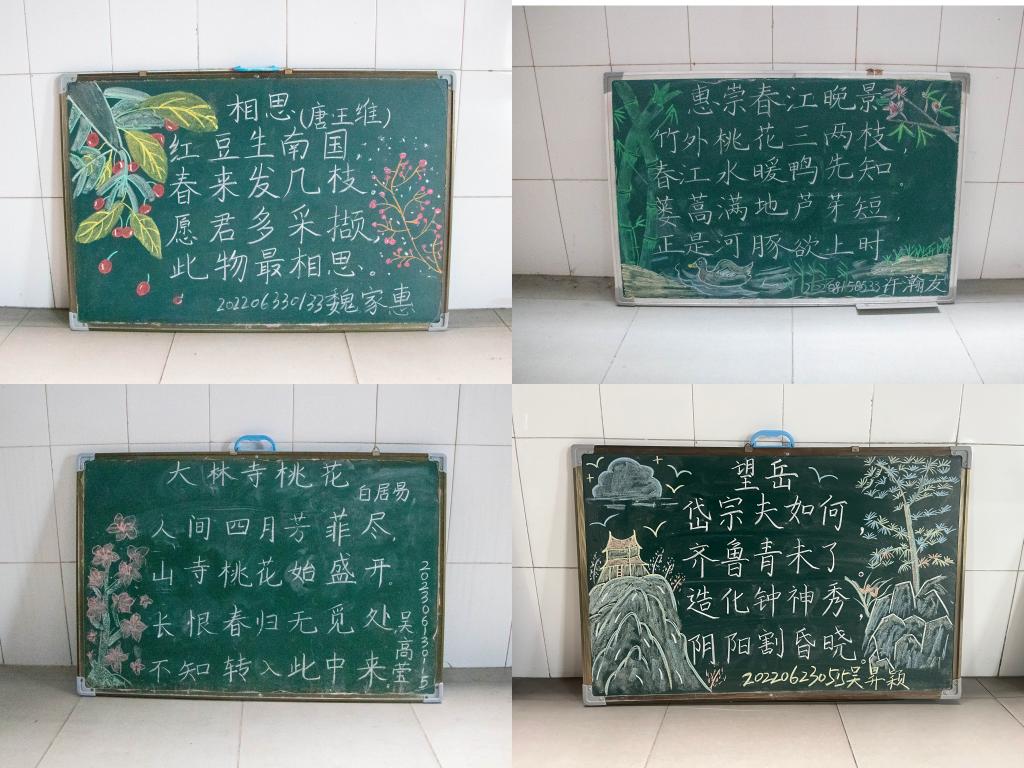 相思(唐王维)
红豆生南国，
春来发几枝。
愿君多采撷，
此物最相思。
202206330133魏家惠
惠崇春江晚景
竹外桃花三两枝，
春江水暖鸭先知。
蒌蒿满地芦芽短，
正是河豚欲上时
许瀚友
大林寺桃花
白居易，
人间四月芳菲尽，
山寺桃花始盛开。
长恨春归无觅处
不知转入此中来
吴高莹
望岳
岱宗夫如何
齐鲁青未了。
造化钟神秀，
阴阳割昏晓。
202206230515吴昇颖